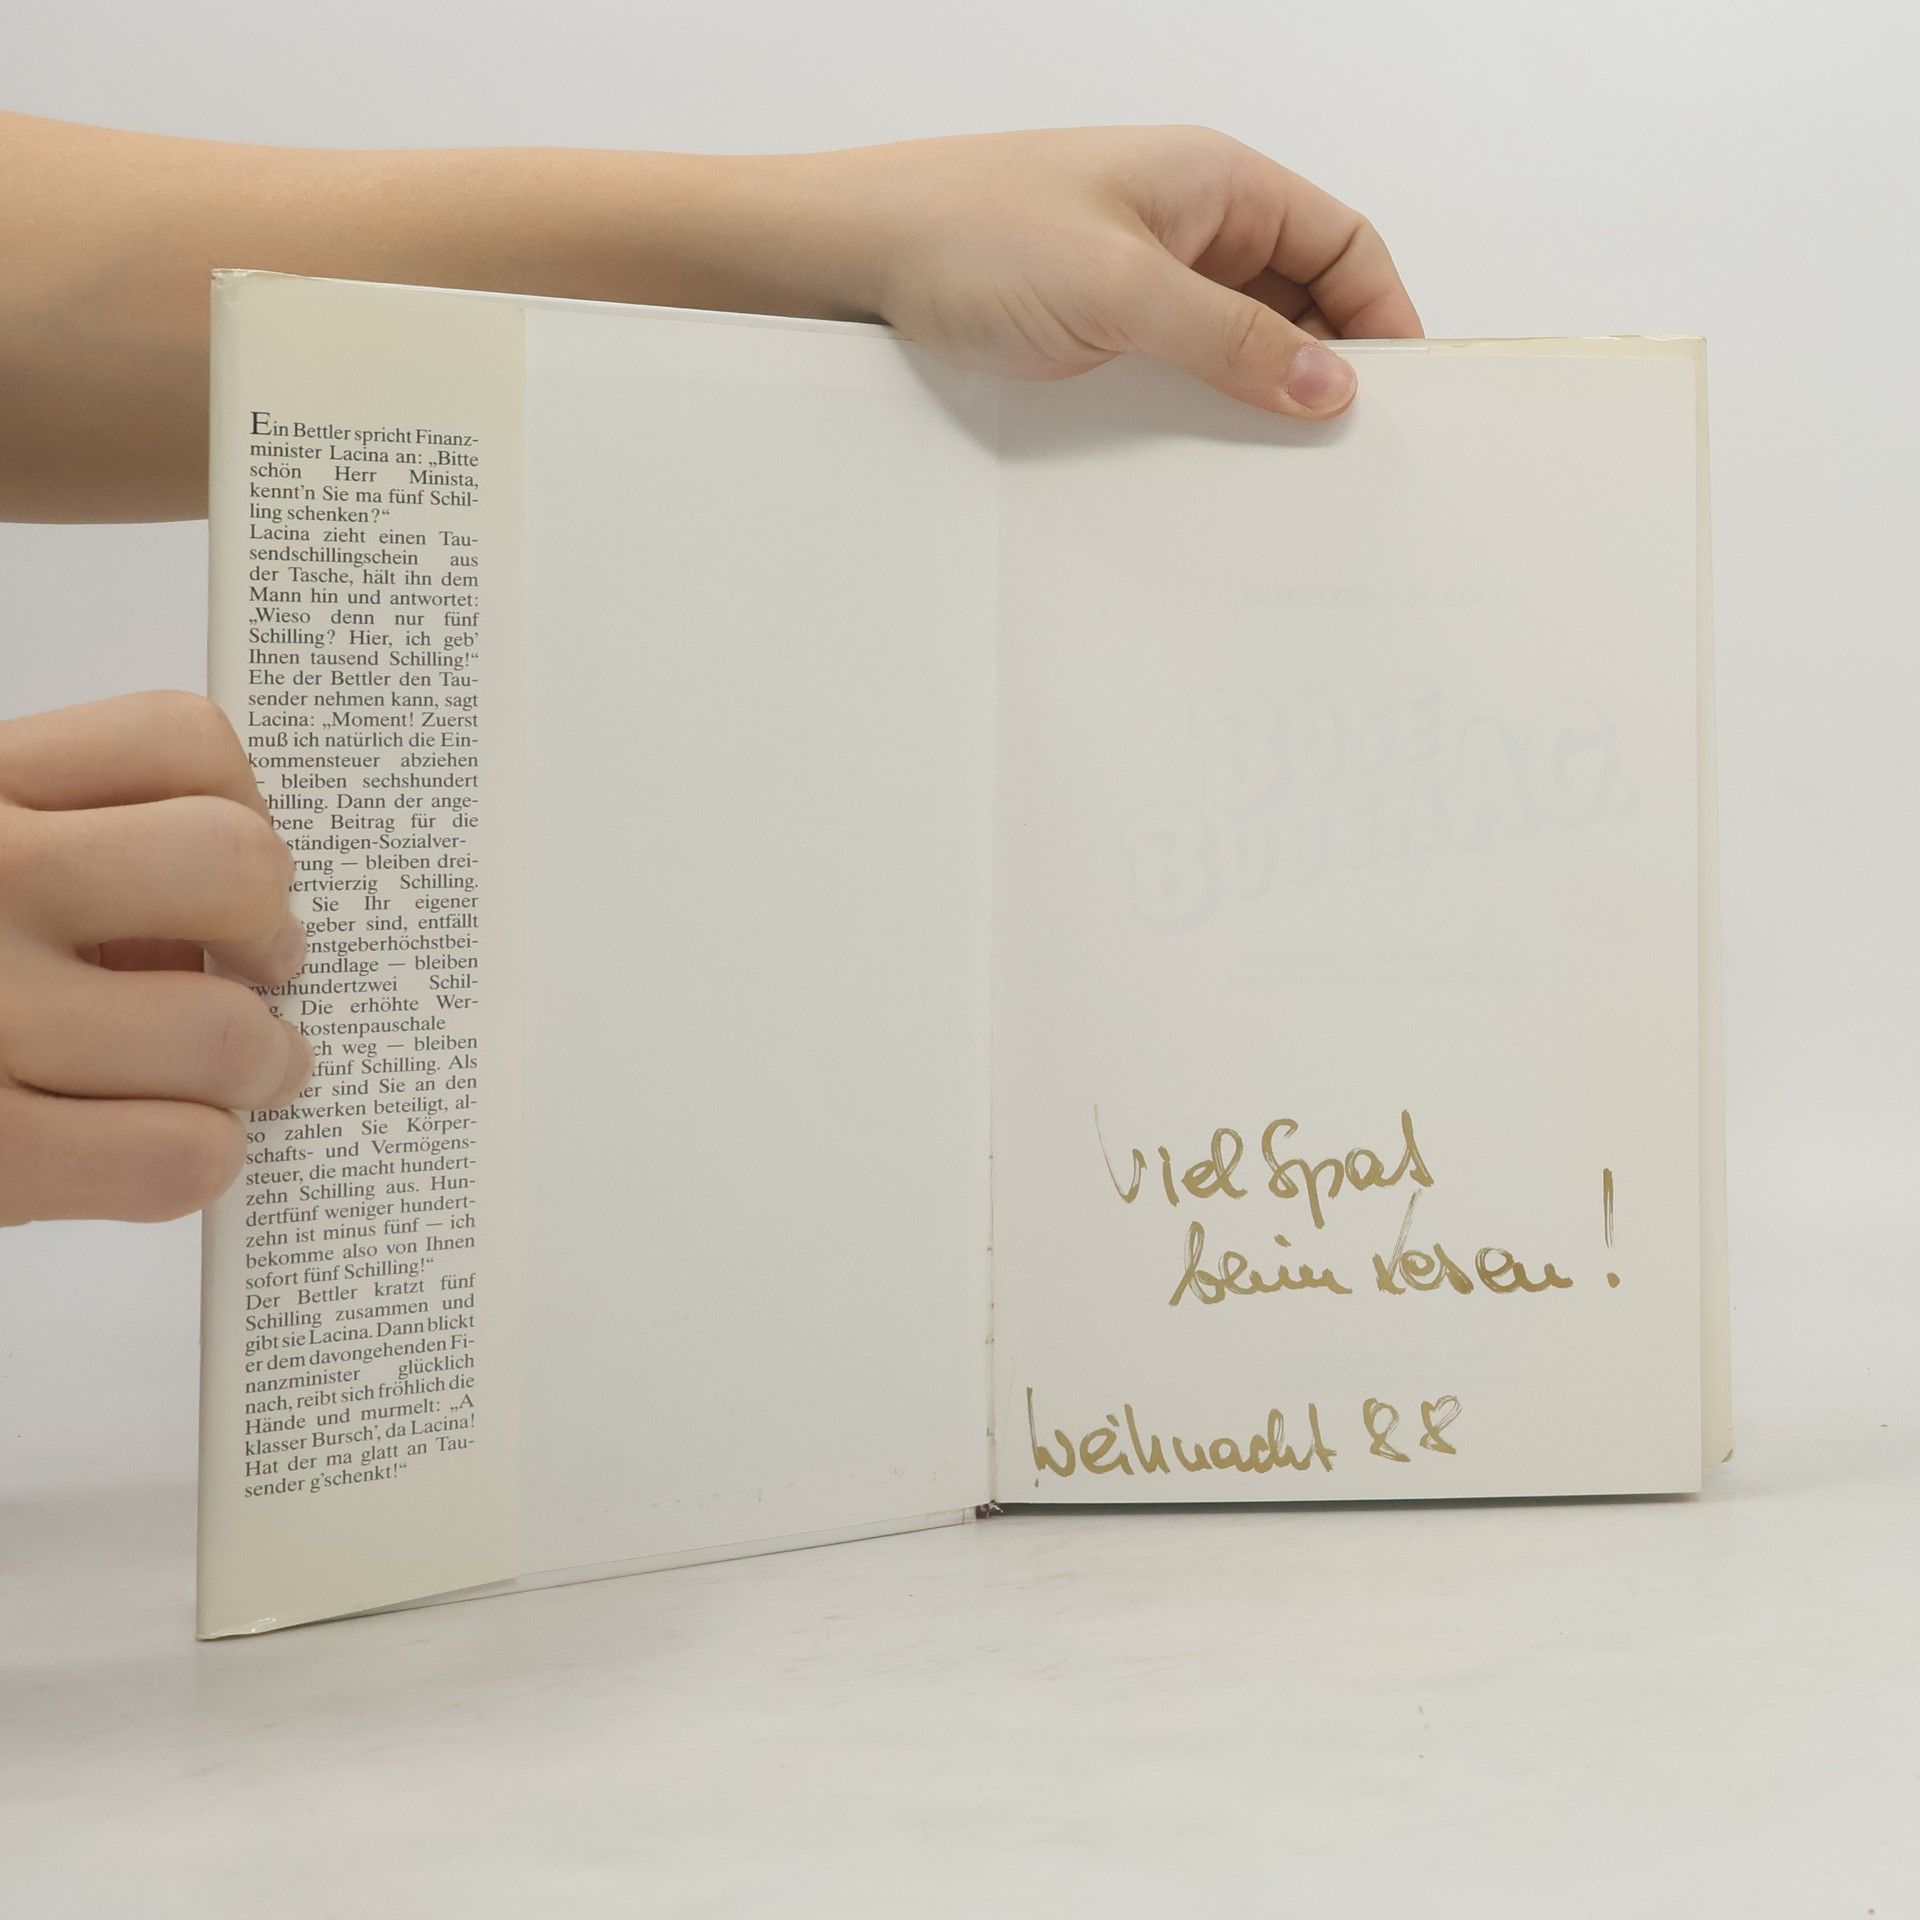 Ein Bettler spricht Finanz-
minister Lacina an: „Bitte
schön Herr Minista,
kennt'n Sie ma fünf Schil-
ling schenken?“
Lacina zieht einen Tau-
sendschillingschein aus
der Tasche, hält ihn dem
Mann hin und antwortet:
„Wieso denn nur fünf
Schilling? Hier, ich geb'
Ihnen tausend Schilling!“
Ehe der Bettler den Tau-
sender nehmen kann, sagt
Lacina: „Moment! Zuerst
muß ich natürlich die Ein-
kommensteuer abziehen
— bleiben sechshundert
chilling. Dann der ange-
bene Beitrag für die
ständigen-Sozialver-
rung — bleiben drei-
ertvierzig Schilling.
Sie Ihr eigener
tgeber sind, entfällt
enstgeberhöchstbei-
grundlage — bleiben
zweihundertzwei Schil-
g. Die erhöhte Wer-
kostenpauschale
ch weg — bleiben
fünf Schilling. Als
er sind Sie an den
Tabakwerken beteiligt, al-
so zahlen Sie Körper-
schafts- und Vermögens-
steuer, die macht hundert-
zehn Schilling aus. Hun-
dertfünf weniger hundert-
zehn ist minus fünf — ich
bekomme also von Ihnen
sofort fünf Schilling!“
Der Bettler kratzt fünf
Schilling zusammen und
gibt sie Lacina. Dann blickt
er dem davongehenden Fi-
nanzminister glücklich
nach, reibt sich fröhlich die
Hände und murmelt: „A
klasser Bursch', da Lacina!
Hat der ma glatt an Tau-
sender g'schenkt!“
Viel Spaß
beim Lesen!
Weihnacht 88